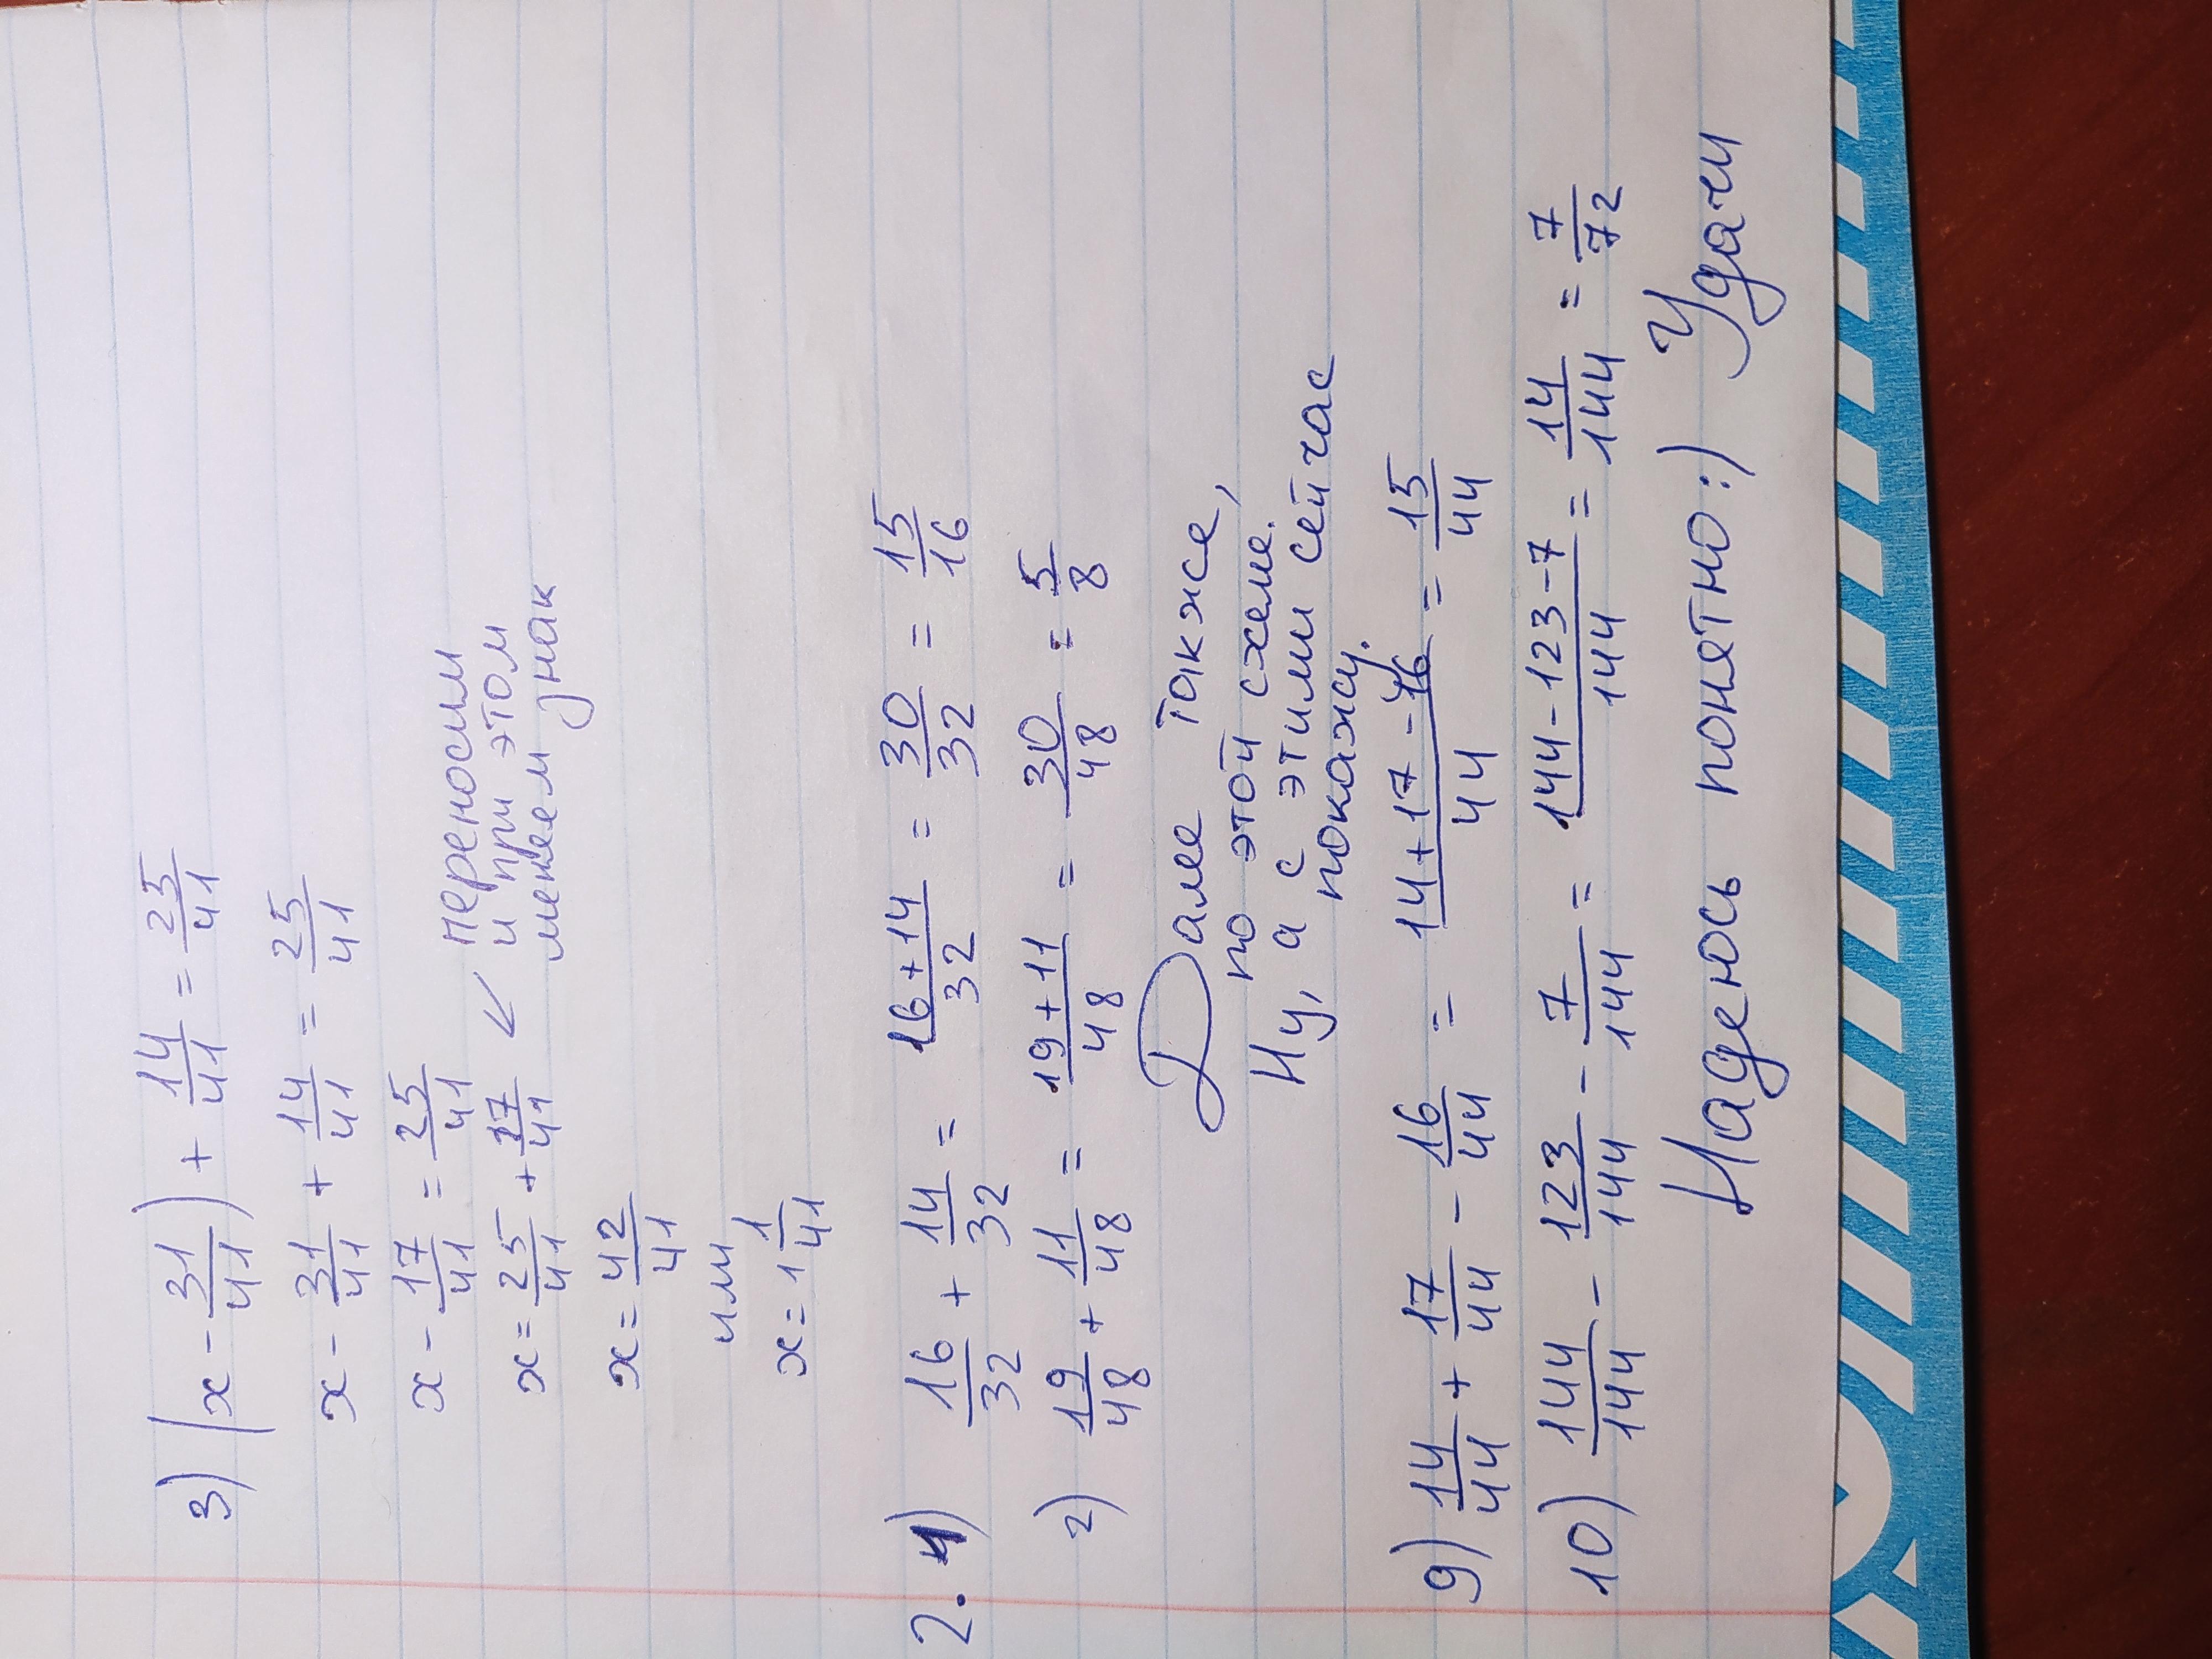 3) (x - 31/41) + 14/41 = 25/41
x - 31/41 + 14/41 = 25/41
x - 17/41 = 25/41
x = 25/41 + 17/41 ← переносим
и при этом
меняем знак
x = 42/41
или
x = 1 1/41
2. 1) 16/32 + 14/32 = (16+14)/32 = 30/32 = 15/16
2) 19/48 + 11/48 = (19+11)/48 = 30/48 = 5/8
Далее также,
по этой схеме.
Ну, а с этими сейчас
покажу.
9) 14/44 + 17/44 - 16/44 = (14+17-16)/44 = 15/44
10) 144/144 - 123/144 - 7/144 = (144-123-7)/144 = 14/144 = 7/72
Надеюсь понятно:) Удачи